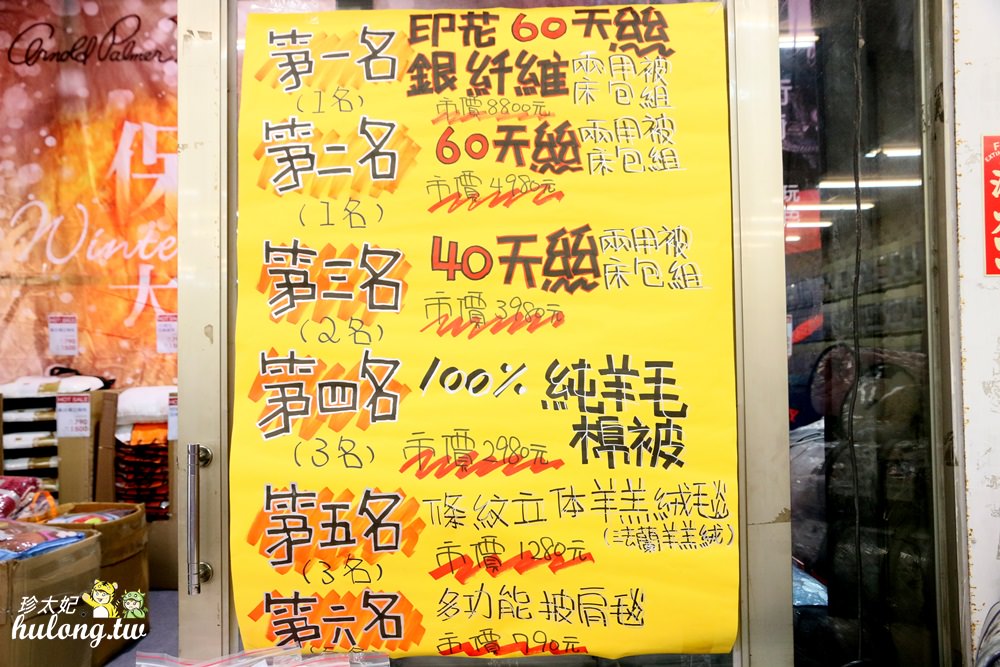 Arnold Palmer
保
Winte
大
第一名
(1名)
印花60天絲
銀纖維 兩用被床包組
市價8800元
第二名
(1名)
60天絲 兩用被床包組
市價4980元
第三名
(2名)
40天絲 兩用被床包組
市價3980元
第四名
(3名)
100% 純羊毛
棉被
市價2980元
第五名
(3名)
條紋立体羊羔絨毛毯
(法蘭羊羔絨)
市價1280元
第六名
多功能披肩毯
市價790元
HOT SALE
HOT SALE
珍太妃
hulong.tw